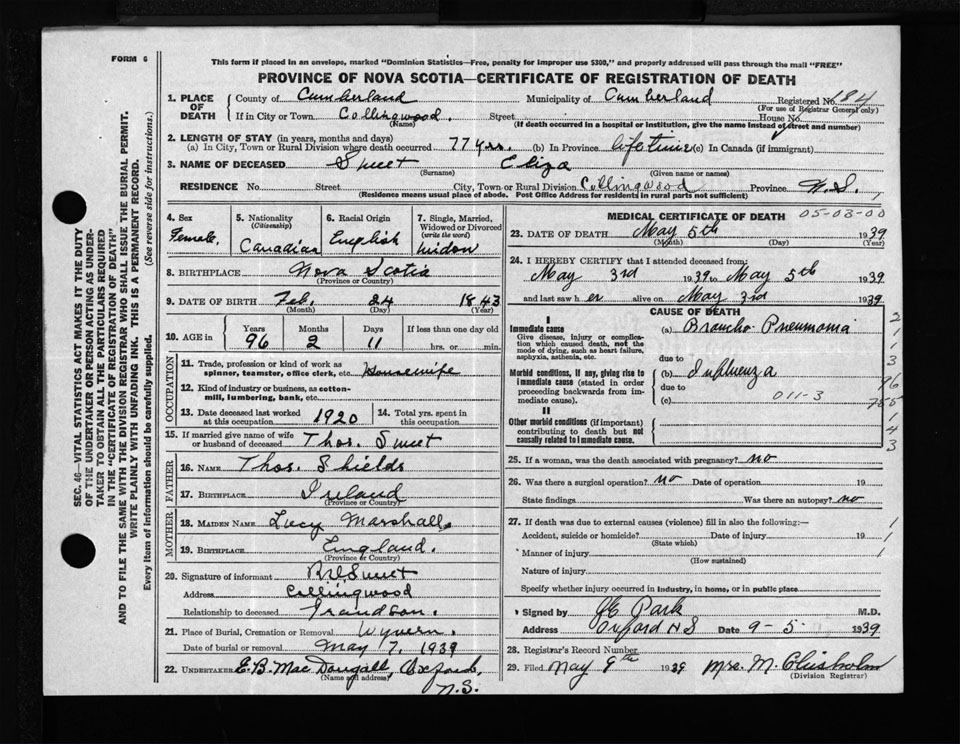 FORM 6
This form if placed in an envelope, marked "Dominion Statistics—Free, penalty for improper use $300," and properly addressed will pass through the mail "FREE"
PROVINCE OF NOVA SCOTIA—CERTIFICATE OF REGISTRATION OF DEATH
1. PLACE OF DEATH
County of Cumberland Municipality of Cumberland Registered No. 184
(For use of Registrar General only)
If in City or Town Collingwood Street House No.
(Name) (If death occurred in a hospital or institution, give the name instead of street and number)
2. LENGTH OF STAY (in years, months and days)
(a) In City, Town or Rural Division where death occurred 77 yrs. (b) In Province lifetime (c) In Canada (if immigrant)
3. NAME OF DECEASED Smet Eliza
(Surname) (Given name or names)
RESIDENCE No. Street City, Town or Rural Division Collingwood Province N.S. 1
(Residence means usual place of abode. Post Office Address for residents in rural parts not sufficient)
4. Sex Female
5. Nationality (Citizenship) Canadian
6. Racial Origin English
7. Single, Married, Widowed or Divorced (write the word) widow
8. BIRTHPLACE Nova Scotia
(Province or Country)
9. DATE OF BIRTH Feb. 24 1843
(Month) (Day) (Year)
10. AGE in Years 96 Months 2 Days 11 If less than one day old hrs. or min.
OCCUPATION
11. Trade, profession or kind of work as spinner, teamster, office clerk, etc. Housewife
12. Kind of industry or business, as cotton-mill, lumbering, bank, etc.
13. Date deceased last worked at this occupation 1920
14. Total yrs. spent in this occupation
15. If married give name of wife or husband of deceased Thos. Smet
FATHER
16. NAME Thos. Shields
17. BIRTHPLACE Ireland
MOTHER
18. MAIDEN NAME Lucy Marshall
19. BIRTHPLACE England.
(Province or Country)
20. Signature of informant Smet
Address Collingwood
Relationship to deceased Grandson.
21. Place of Burial, Cremation or Removal Wyvern.
Date of burial or removal May 7, 1939
22. UNDERTAKER E.B. MacDougall, Oxford, N.S.
(Name and address)
MEDICAL CERTIFICATE OF DEATH 05-03-00
23. DATE OF DEATH May 5th 1939
(Month) (Day) (Year)
24. I HEREBY CERTIFY that I attended deceased from:
May 3rd 1939 to May 5th 1939
and last saw h er alive on May 3rd 1939
CAUSE OF DEATH
I
Immediate cause
Give disease, injury or complication which caused death, not the mode of dying, such as heart failure, asphyxia, asthenia, etc.
(a) Broncho-Pneumonia
due to
Morbid conditions, if any, giving rise to immediate cause (stated in order proceeding backwards from immediate cause).
(b) Influenza
due to
(c) 011-3
II
Other morbid conditions (if important) contributing to death but not causally related to immediate cause.
2
1
1
3
96
1
4
3
25. If a woman, was the death associated with pregnancy? no
26. Was there a surgical operation? no Date of operation 19
State findings Was there an autopsy? no
27. If death was due to external causes (violence) fill in also the following:—
Accident, suicide or homicide? Date of injury 19 1
(State which)
Manner of injury 1
(How sustained)
Nature of injury
Specify whether injury occurred in industry, in home, or in public place
Signed by Park M.D.
Address Oxford NS Date 9-5- 1939
28. Registrar's Record Number
29. Filed May 9th 1939 Mrs. M. Chisholm
(Division Registrar)
SEC. 46—VITAL STATISTICS ACT MAKES IT THE DUTY
OF THE UNDERTAKER OR PERSON ACTING AS UNDER-
TAKER TO OBTAIN ALL THE PARTICULARS REQUIRED
IN THE "CERTIFICATE OF REGISTRATION OF DEATH"
AND TO FILE THE SAME WITH THE DIVISION REGISTRAR WHO SHALL ISSUE THE BURIAL PERMIT.
WRITE PLAINLY WITH UNFADING INK. THIS IS A PERMANENT RECORD.
Every item of information should be carefully supplied. (See reverse side for instructions.)